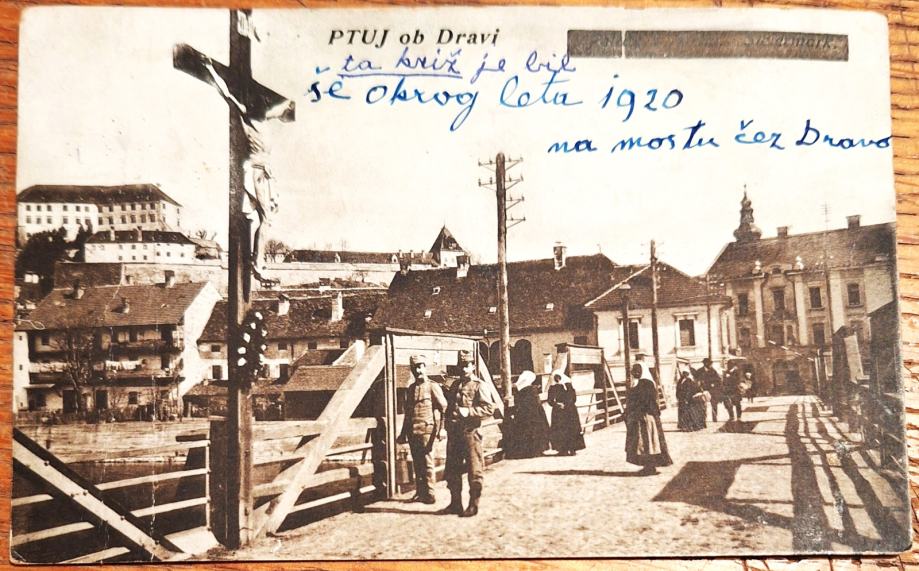 PTUJ ob Dravi
ta križ je bil
še okrog leta 1920
na mostu čez Dravo